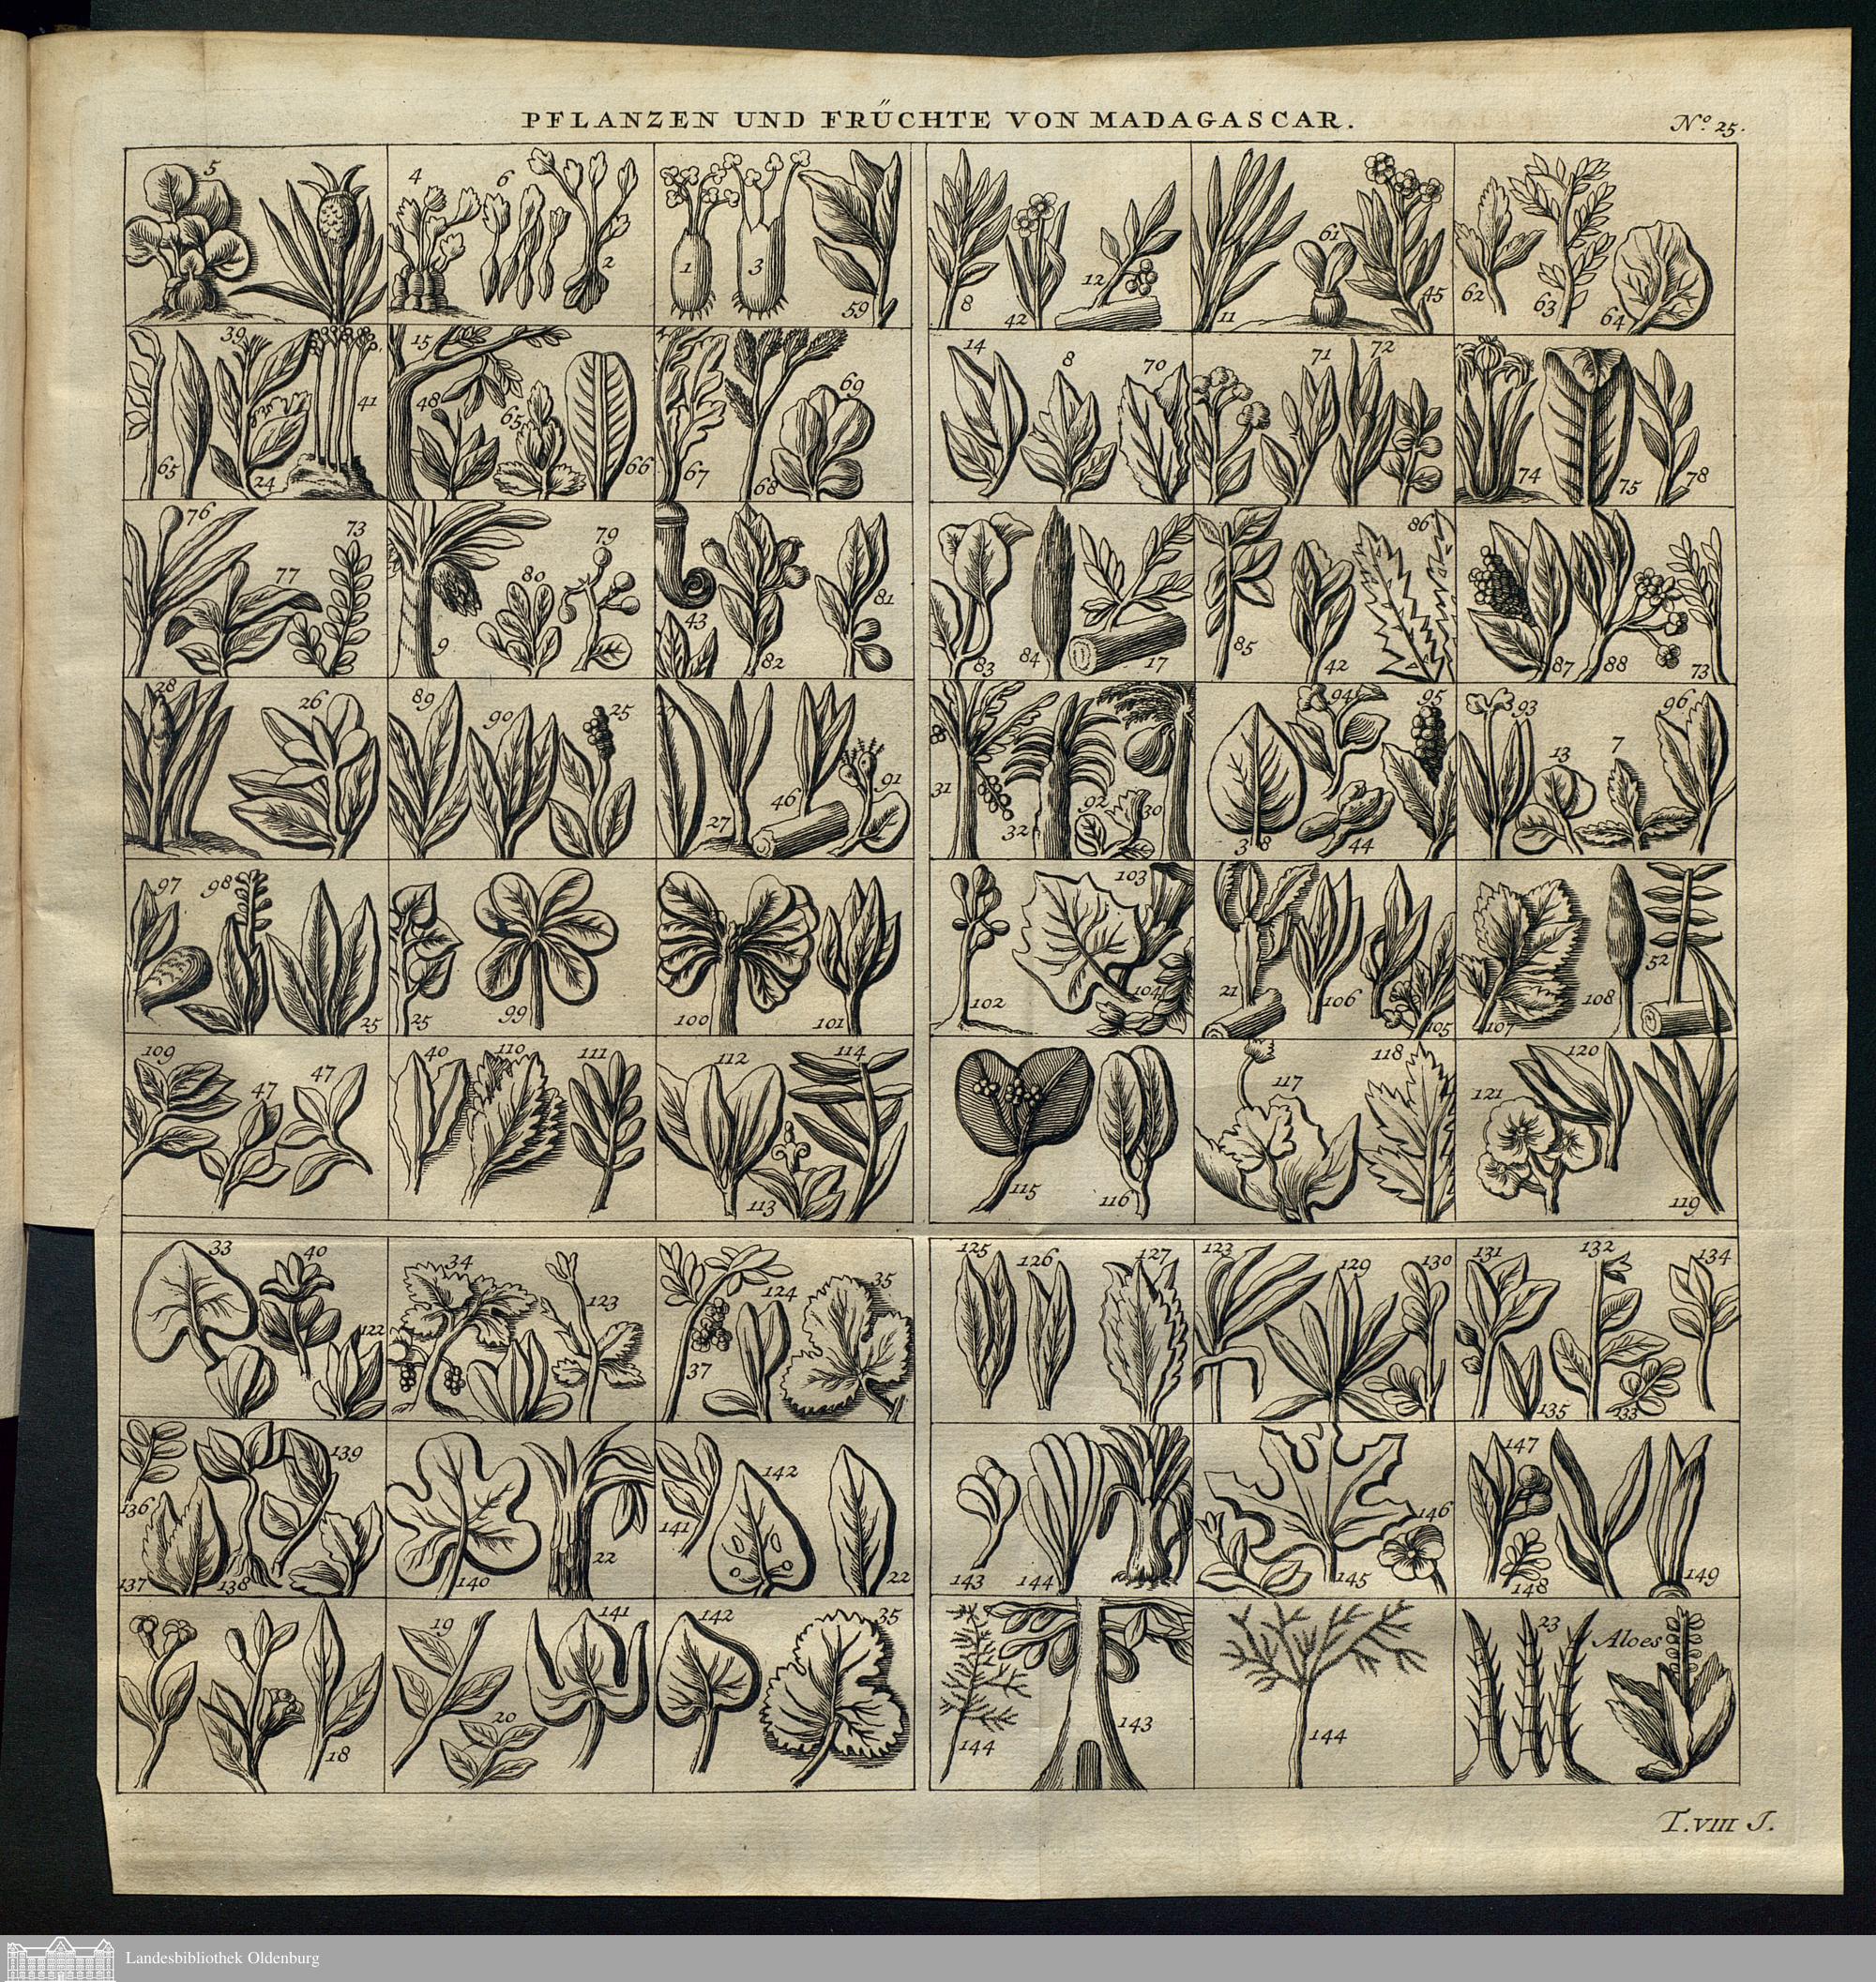 PFLANZEN UND FRÜCHTE VON MADAGASCAR.
Nº 25.
5
4 6 2
1 3 59
8 42 12
11 61 45
62 63 64
65 39 24 41
15 48 65 66
67 68 69
14 8 70
71 72
74 75 78
76 77 73
9 80 79
43 82 81
83 84 17
85 42 86
87 88 73
28 26
89 90 25
27 46 91
31 32 92 30
38 94 44 95
93 13 7 96
97 98 25
25 99
100 101
102 103 104
21 106 105
107 108 52
109 47 47
40 110 111
112 113 114
115 116
117 118
121 120 119
33 40 122
34 123
37 124 35
125 126 127
123 129 130
131 135 132 133 134
136 137 138 139
140 22
141 142 22
143 144
145 146
147 148 149
18
19 20 141
142 35
144 143
144
23 Aloes
T. VIII J.
Landesbibliothek Oldenburg